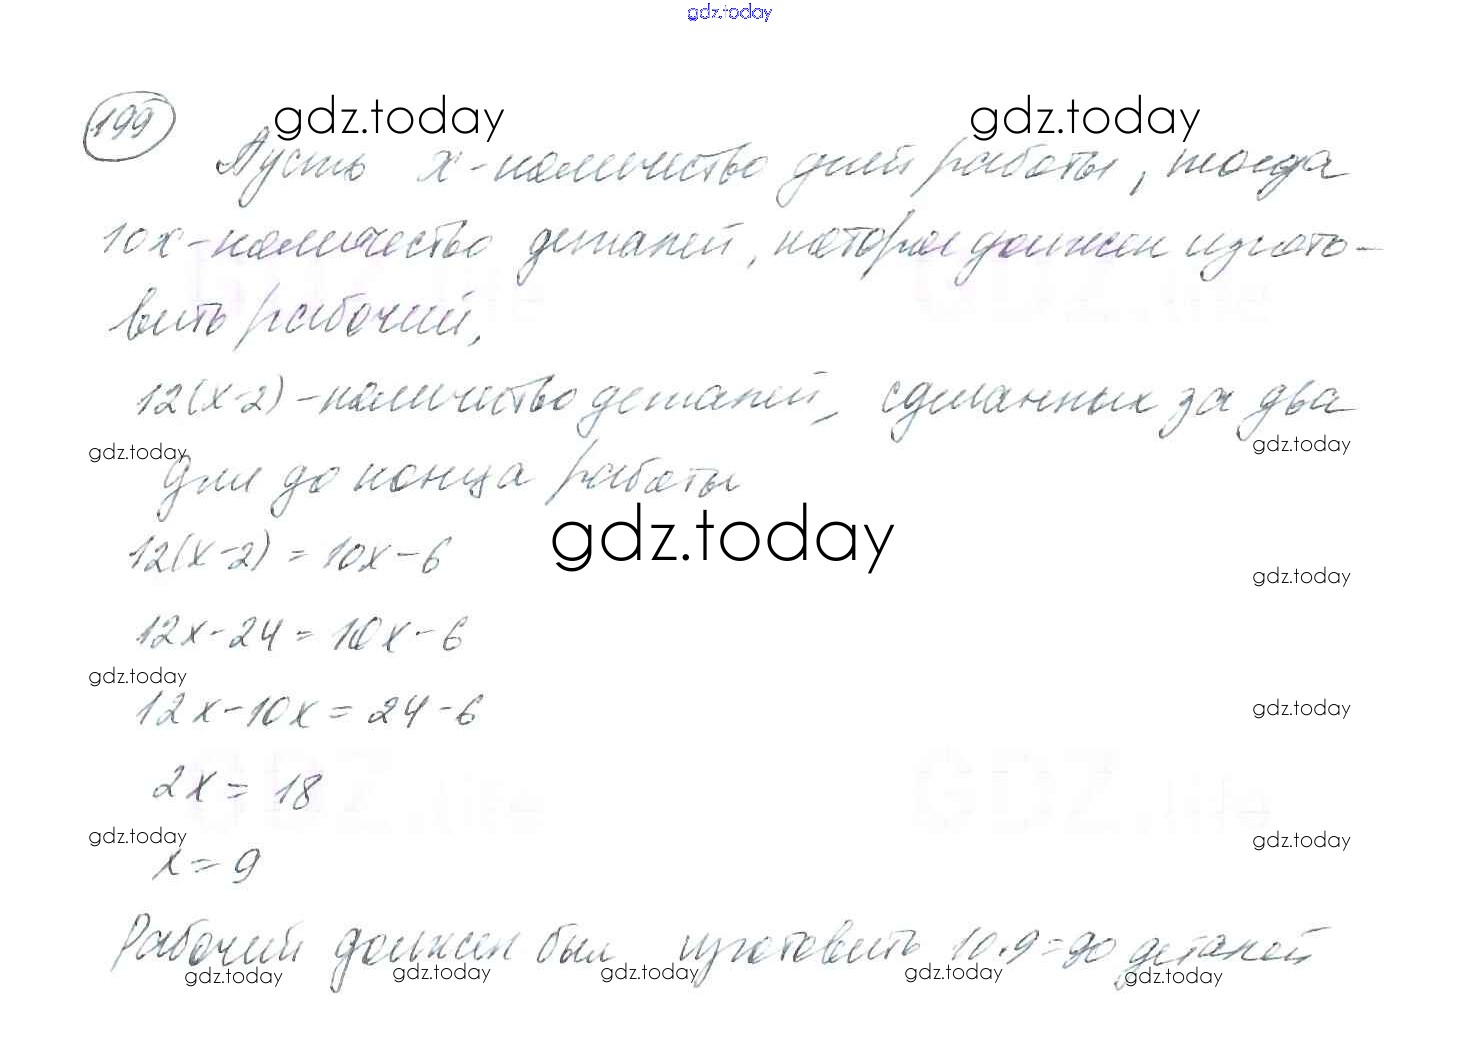 gdz.today
199
gdz.today gdz.today
Пусть x - количество дней работы, тогда
10x - количество деталей, которое должен изгото-
вить рабочий,
12(x-2) - количество деталей, сделанных за два
gdz.today gdz.today
дня до конца работы
gdz.today
12(x-2) = 10x - 6
gdz.today
12x - 24 = 10x - 6
gdz.today
12x - 10x = 24 - 6
gdz.today
2x = 18
gdz.today gdz.today
x = 9
Рабочий должен был изготовить 10·9=90 деталей
gdz.today gdz.today gdz.today gdz.today gdz.today